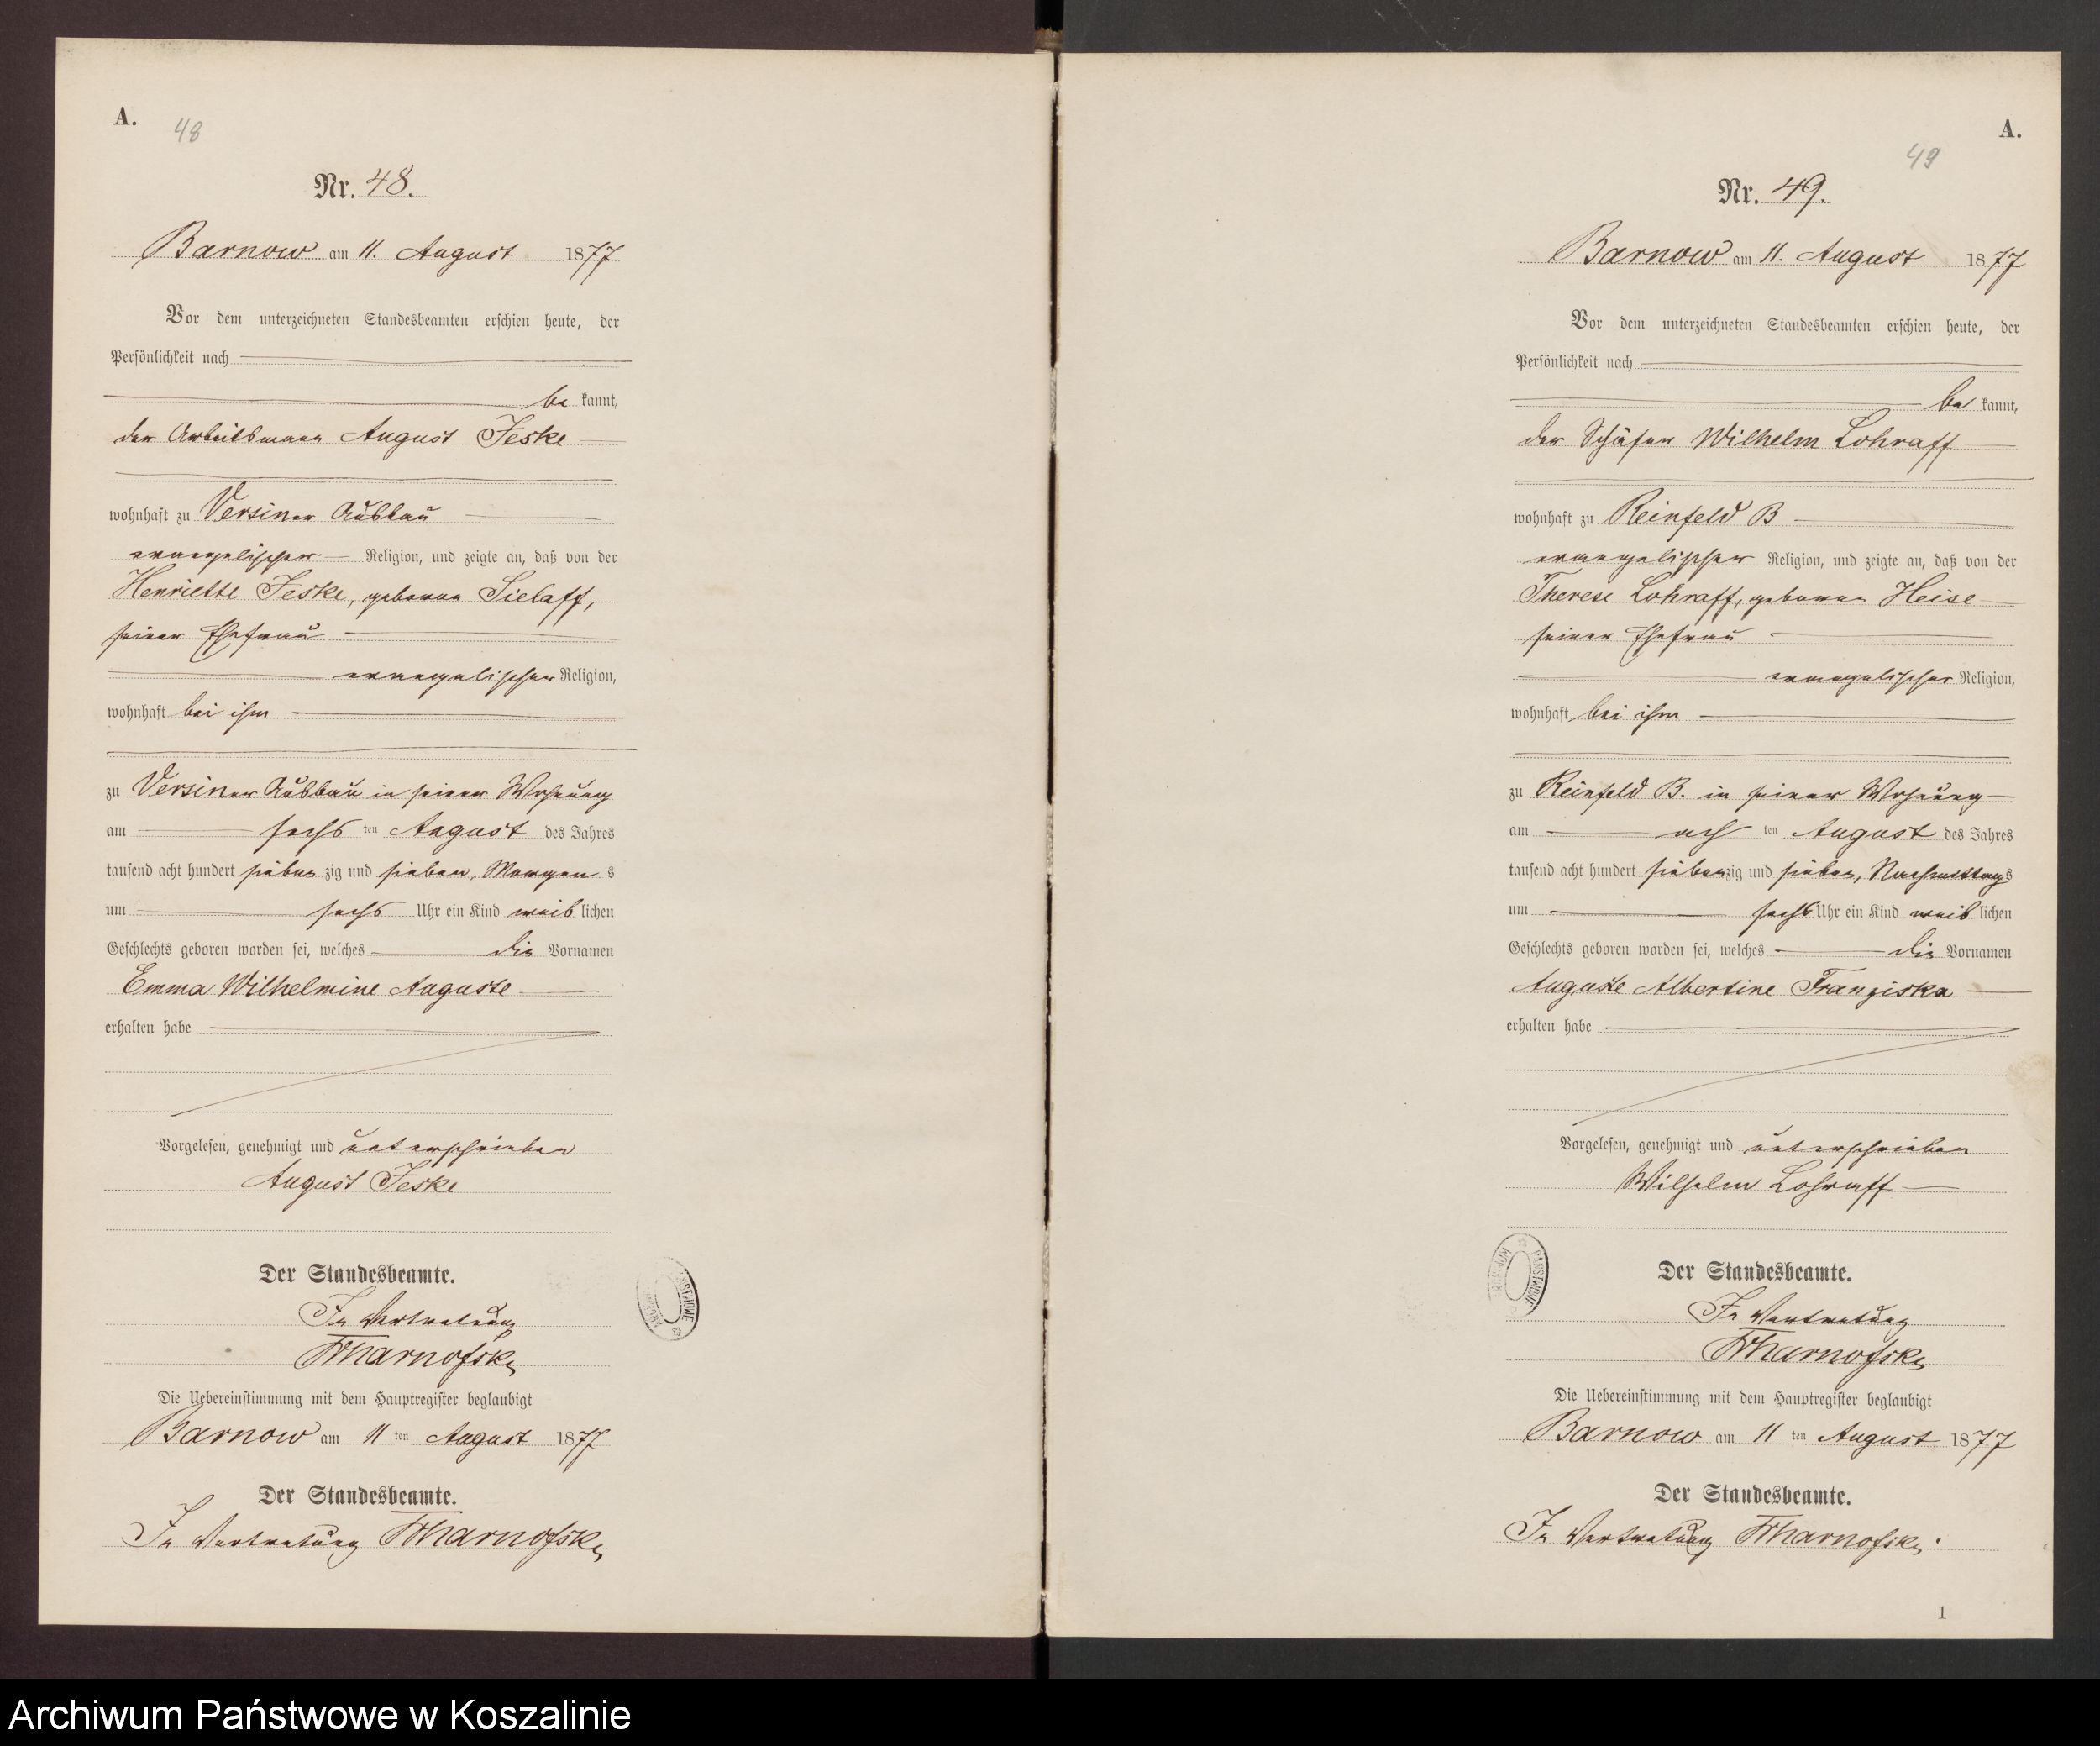 A.
48
Nr. 48.
Barnow am 11. August 1877
Vor dem unterzeichneten Standesbeamten erschien heute, der
Persönlichkeit nach
be kannt,
der Arbeitsmann August Jeske
wohnhaft zu Versiner Ausbau
evangelischer Religion, und zeigte an, daß von der
Henriette Jeske, geborene Sielaff,
seiner Ehefrau
evangelischer Religion,
wohnhaft bei ihm
zu Versiner Ausbau in seiner Wohnung
am sechs ten August des Jahres
tausend acht hundert sieben zig und sieben, Morgen s
um sechs Uhr ein Kind weib lichen
Geschlechts geboren worden sei, welches die Vornamen
Emma Wilhelmine Auguste
erhalten habe
Vorgelesen, genehmigt und unterschrieben
August Jeske
Der Standesbeamte.
In Vertretung
Die Uebereinstimmung mit dem Hauptregister beglaubigt
Barnow am 11 ten August 1877
Der Standesbeamte.
In Vertretung
A.
49
Nr. 49.
Barnow am 11. August 1877
Vor dem unterzeichneten Standesbeamten erschien heute, der
Persönlichkeit nach
be kannt,
der Schäfer Wilhelm Lohraff
wohnhaft zu Reinfeld B
evangelischer Religion, und zeigte an, daß von der
Therese Lohraff, geborene Heise
seiner Ehefrau
evangelischer Religion,
wohnhaft bei ihm
zu Reinfeld B. in seiner Wohnung
am ach ten August des Jahres
tausend acht hundert sieben zig und sieben, Nachmittag s
um sechs Uhr ein Kind weib lichen
Geschlechts geboren worden sei, welches die Vornamen
Auguste Albertine Franziska
erhalten habe
Vorgelesen, genehmigt und unterschrieben
Wilhelm Lohraff
Der Standesbeamte.
In Vertretung
Die Uebereinstimmung mit dem Hauptregister beglaubigt
Barnow am 11 ten August 1877
Der Standesbeamte.
In Vertretung
1
Archiwum Państwowe w Koszalinie